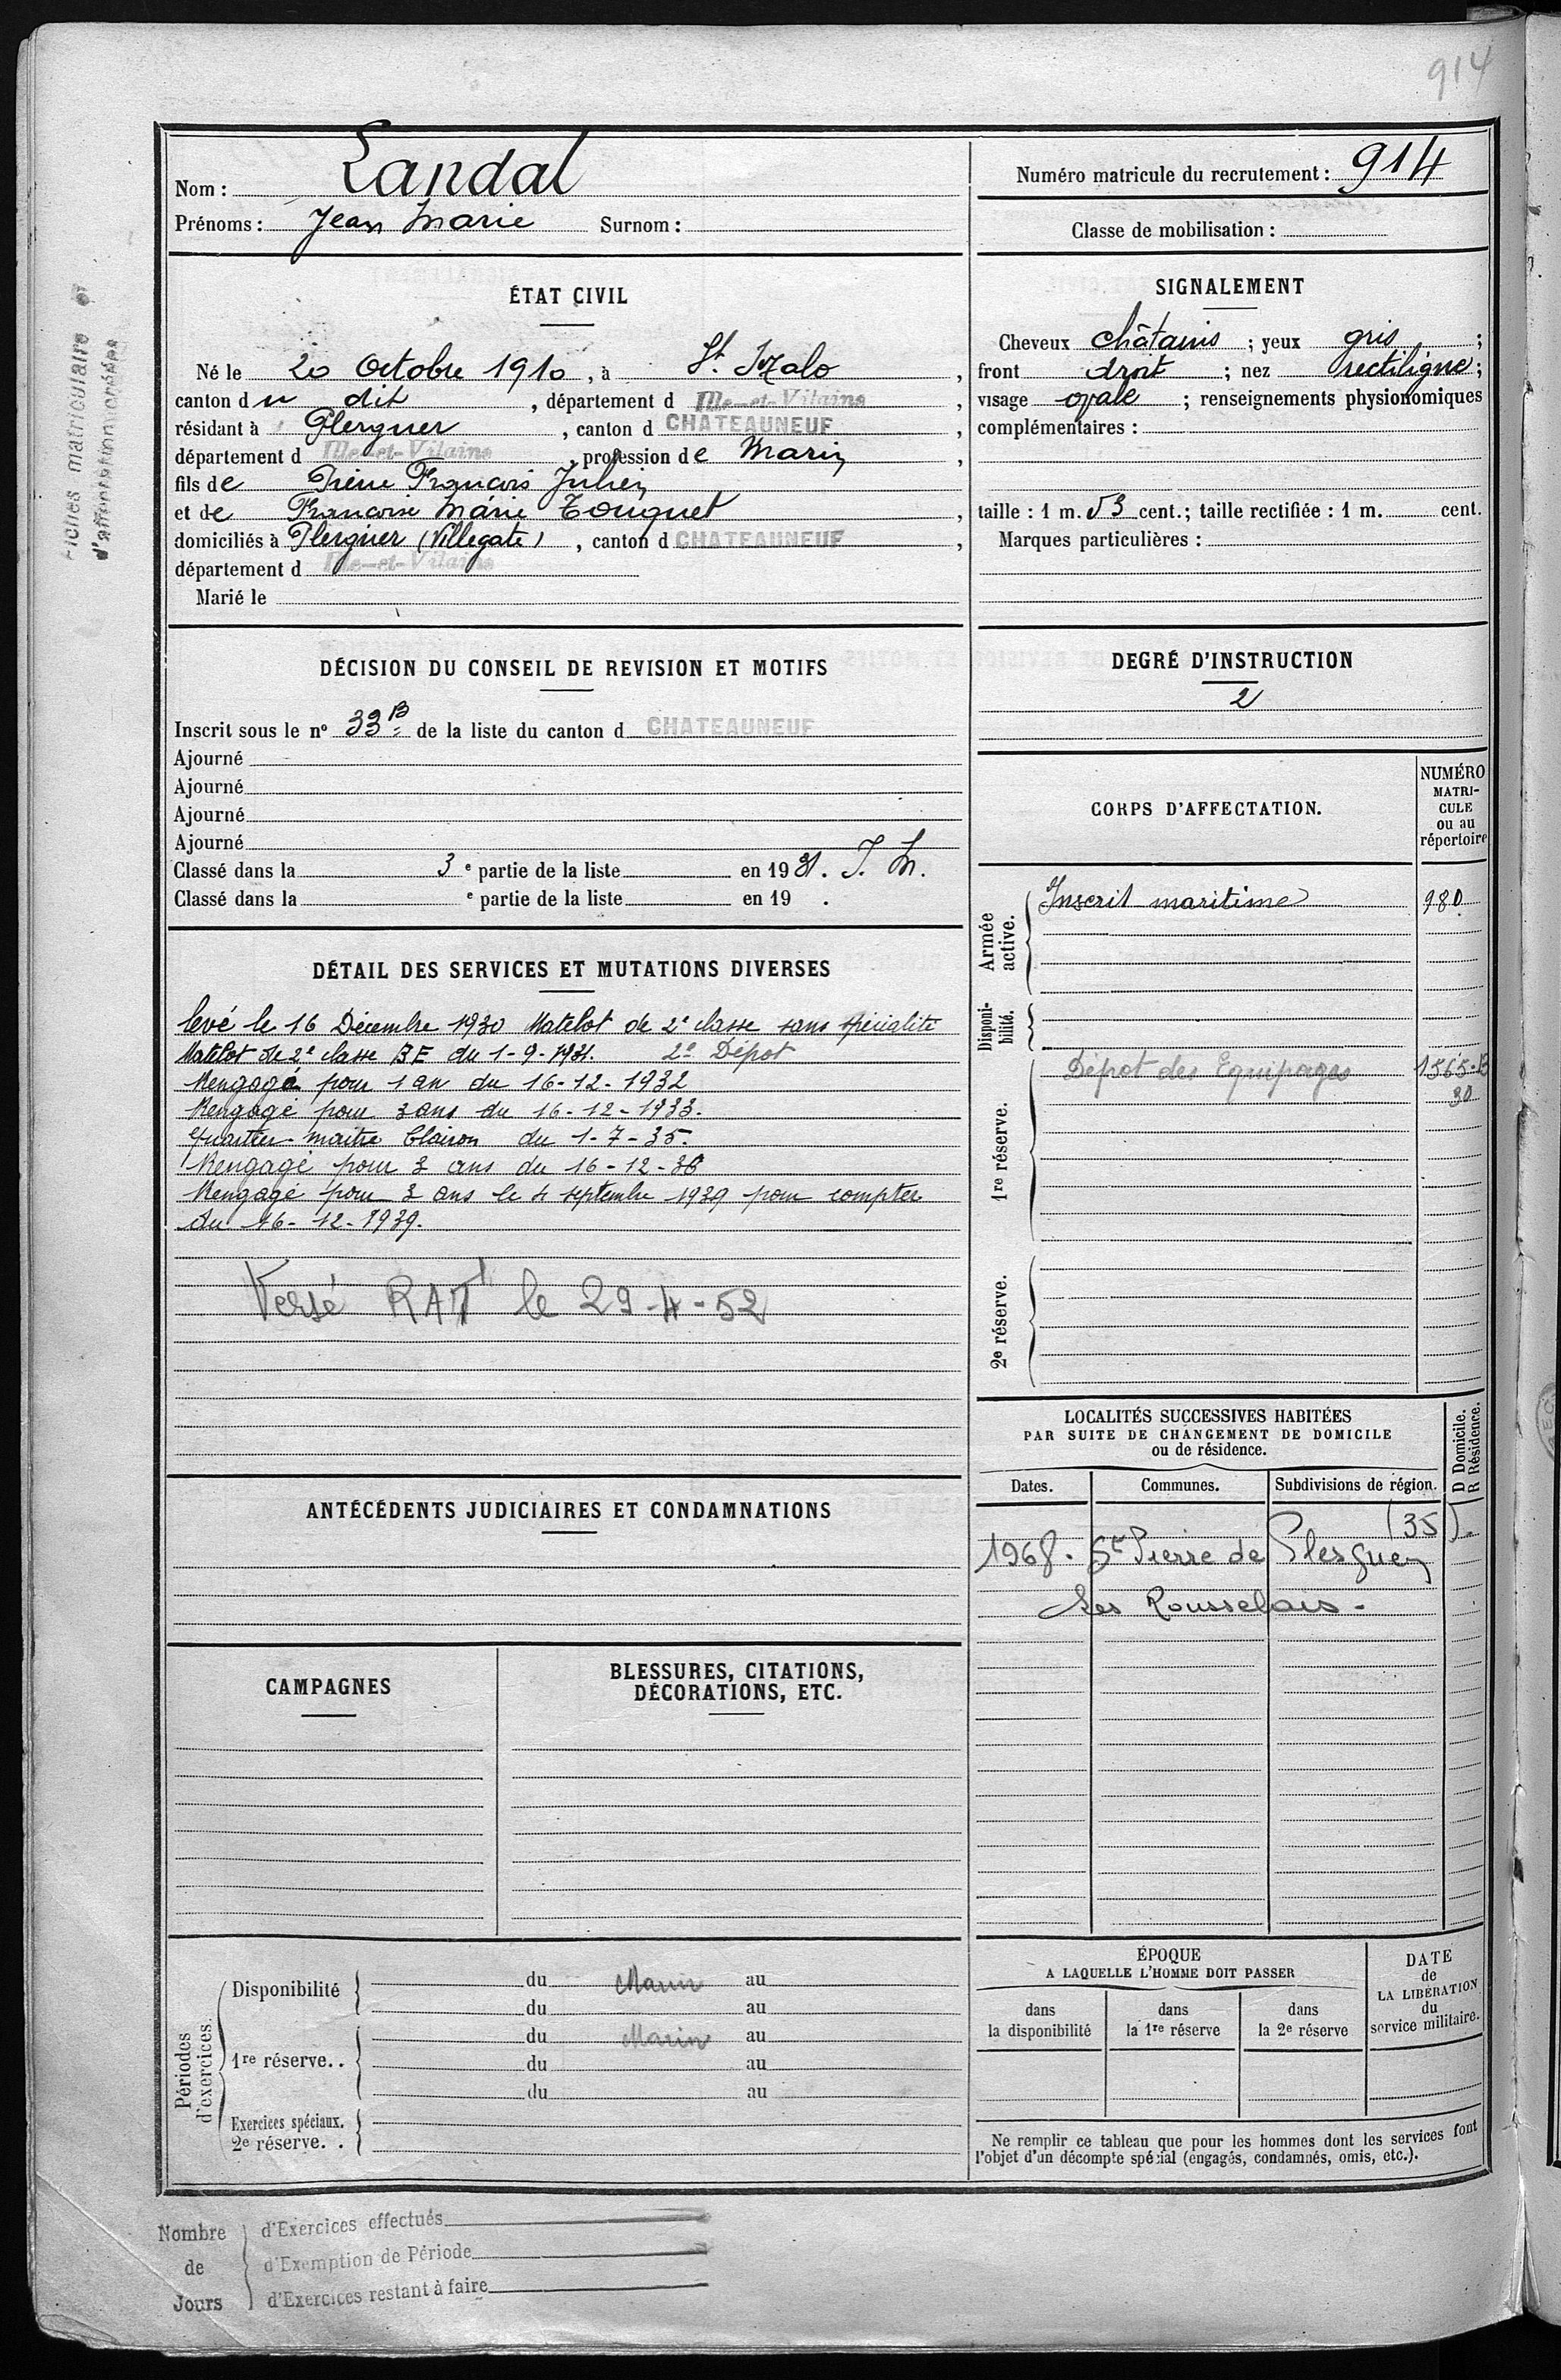 914
Nom : Landal
Prénoms : Jean Marie Surnom :
Numéro matricule du recrutement : 914
Classe de mobilisation :
Fiches matriculaire et
ÉTAT CIVIL
Né le 20 Octobre 1910, à St. Malo,
canton du dit, département d Ille-et-Vilaine,
résidant à Plerguer, canton d CHATEAUNEUF,
département d Ille-et-Vilaine, profession de Marin,
fils de Pierre François Julien
et de Françoise Marie Touquet,
domiciliés à Plerguer (Villegate), canton d CHATEAUNEUF,
département d Ille-et-Vilaine
Marié le
SIGNALEMENT
Cheveux châtains ; yeux gris ;
front droit ; nez rectiligne ;
visage ovale ; renseignements physionomiques
complémentaires :
taille : 1 m. 53 cent. ; taille rectifiée : 1 m. cent.
Marques particulières :
DÉCISION DU CONSEIL DE REVISION ET MOTIFS
Inscrit sous le nº 33 B de la liste du canton d CHATEAUNEUF
Ajourné
Ajourné
Ajourné
Ajourné
Classé dans la 3 e partie de la liste en 1931. I. M.
Classé dans la e partie de la liste en 19 .
DEGRÉ D'INSTRUCTION
2
CORPS D'AFFECTATION.
NUMÉRO
MATRI-
CULE
ou au
répertoire
Armée
active.
Inscrit maritime 980
Disponi-
bilité.
1re réserve.
Dépot des Equipages 1565-B
30
2e réserve.
DÉTAIL DES SERVICES ET MUTATIONS DIVERSES
levé le 16 Décembre 1930 Matelot de 2e classe sans spécialité
Matelot de 2e classe BE du 1-9-1931. 2e Dépot
Rengagé pour 1 an du 16-12-1932
Rengagé pour 3 ans du 16-12-1933.
Quartier-maître Clairon du 1-7-35.
Rengagé pour 3 ans du 16-12-36
Rengagé pour 3 ans le 4 septembre 1939 pour compter
du 16-12-1939.
Versé RAT le 29-4-52
LOCALITÉS SUCCESSIVES HABITÉES
PAR SUITE DE CHANGEMENT DE DOMICILE
ou de résidence.
D Domicile.
R Résidence.
Dates. Communes. Subdivisions de région.
(35).
1968. St Pierre de Plesguen
Les Rousselais.
ANTÉCÉDENTS JUDICIAIRES ET CONDAMNATIONS
CAMPAGNES
BLESSURES, CITATIONS,
DÉCORATIONS, ETC.
Périodes
d'exercices.
Disponibilité
du Marin au
du au
1re réserve..
du Marin au
du au
du au
Exercices spéciaux.
2e réserve. .
ÉPOQUE
A LAQUELLE L'HOMME DOIT PASSER
dans
la disponibilité
dans
la 1re réserve
dans
la 2e réserve
DATE
de
LA LIBÉRATION
du
service militaire.
Ne remplir ce tableau que pour les hommes dont les services font
l'objet d'un décompte spécial (engagés, condamnés, omis, etc.).
Nombre
de
Jours
d'Exercices effectués
d'Exemption de Période
d'Exercices restant à faire